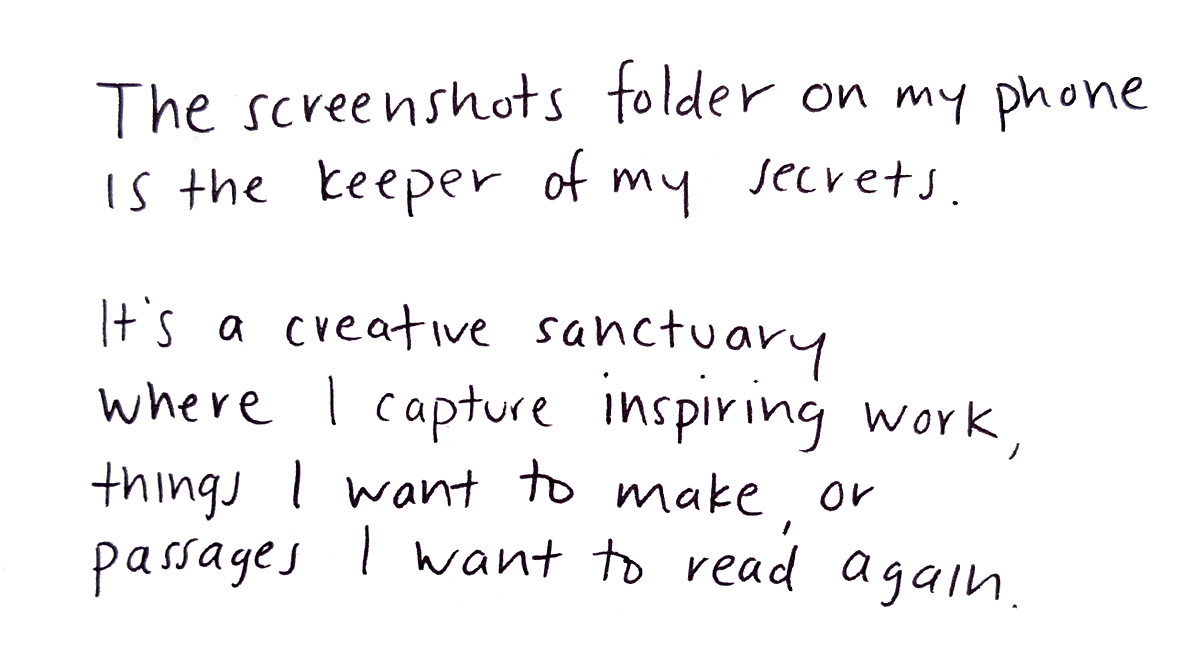 The screenshots folder on my phone
is the keeper of my secrets.
It's a creative sanctuary
where I capture inspiring work,
things I want to make, or
passages I want to read again.